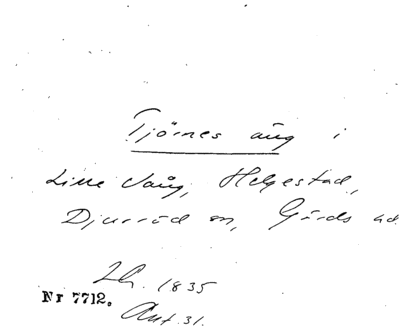 Tjörnes äng i
Lille Vång, Helgestad,
Djurröd sn, Gärds hd
Lh. 1835
Nr 7712.
Ant. 31.